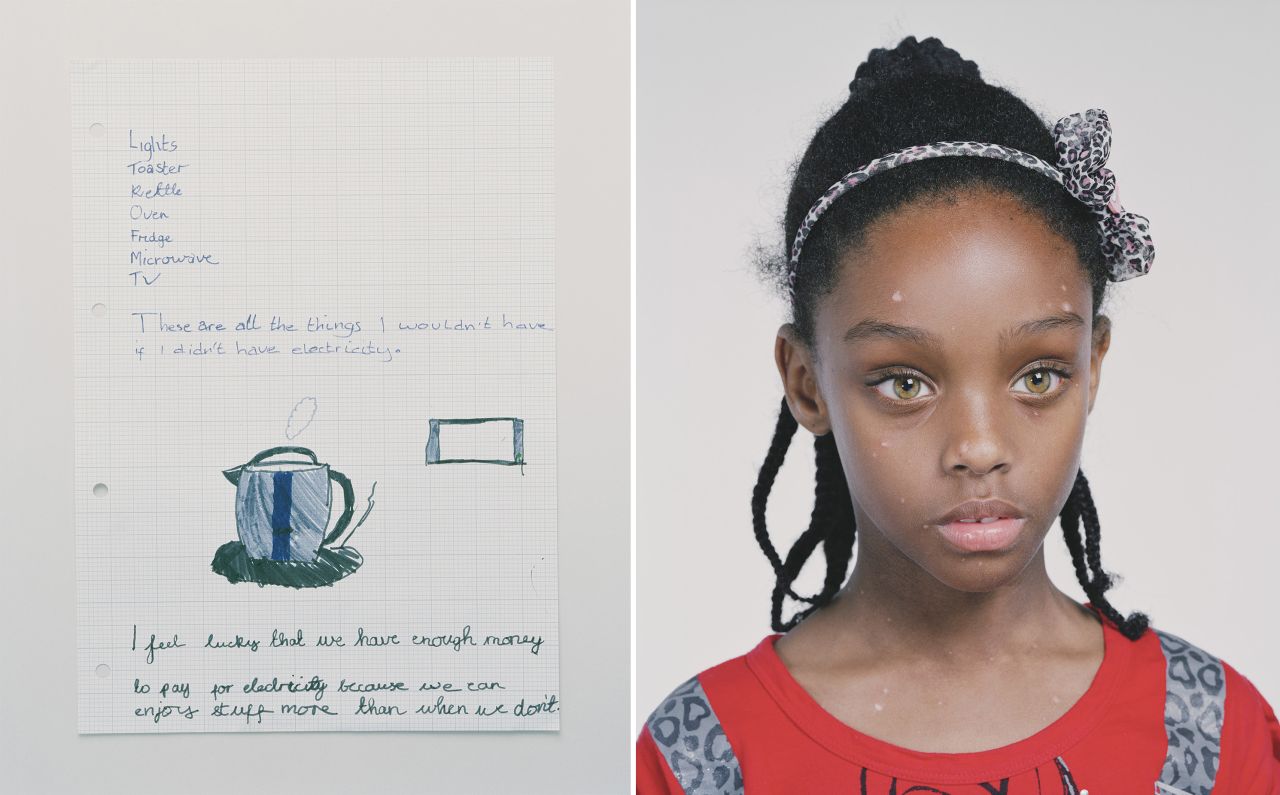 Lights
Toaster
Kettle
Oven
Fridge
Microwave
TV
These are all the things I wouldn't have
if I didn't have electricity.
I feel lucky that we have enough money
to pay for electricity because we can
enjoy stuff more than when we dont.